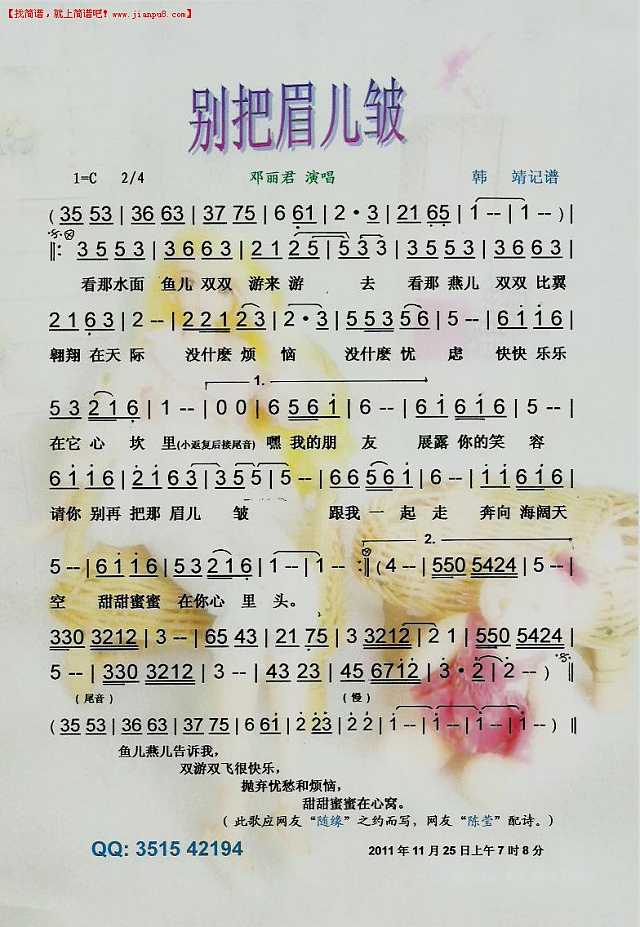 【找简谱，就上简谱吧！www.jianpu8.com】
别把眉儿皱
1=C 2/4 邓丽君 演唱 韩 靖记谱
( 35 53 | 36 63 | 37 75 | 6 61 | 2 · 3 | 21 65 | 1 -- | 1 -- ) |
‖: 3 5 5 3 | 3 6 6 3 | 2 1 2 5 | 5 3 3 | 3 5 5 3 | 3 6 6 3 |
看那水面 鱼儿 双双 游来 游 去 看那 燕儿 双双 比翼
2 1 6 3 | 2 -- | 2 2 1 2 3 | 2 · 3 | 5 5 3 5 6 | 5 -- | 6 1 1 6 |
翱翔 在天 际 没什麽 烦 恼 没什麽 忧 虑 快快 乐乐
1.
5 3 2 1 6 | 1 -- | 0 0 | 6 5 6 1 | 6 -- | 6 1 6 1 6 | 5 -- |
在它 心 坎 里(小返复后接尾音) 嘿 我的 朋 友 展露 你的 笑 容
6 1 1 6 | 2 1 6 3 | 3 5 5 | 5 -- | 6 6 5 6 1 | 6 -- | 6 1 1 6 |
请你 别再 把那 眉儿 皱 跟我 一 起 走 奔向 海阔天
2.
5 -- | 6 1 1 6 | 5 3 2 1 6 | 1 -- | 1 -- :‖ (4 -- | 550 5424 | 5 -- |
空 甜甜蜜蜜 在你心 里 头。
330 3212 | 3 -- | 65 43 | 21 75 | 3 3212 | 2 1 | 550 5424 |
5 -- | 330 3212 | 3 -- | 43 23 | 45 6712 | 3 · 2 | 2 -- ) ‖
（尾音） （慢）
( 35 53 | 36 63 | 37 75 | 6 61 | 2 23 | 2 2 | 1 -- | 1 -- | 1 -- | 1 -- ) ‖
鱼儿燕儿告诉我，
双游双飞很快乐，
抛弃忧愁和烦恼，
甜甜蜜蜜在心窝。
（此歌应网友“随缘”之约而写，网友“陈莹”配诗。）
QQ: 3515 42194 2011 年 11 月 25 日上午 7 时 8 分